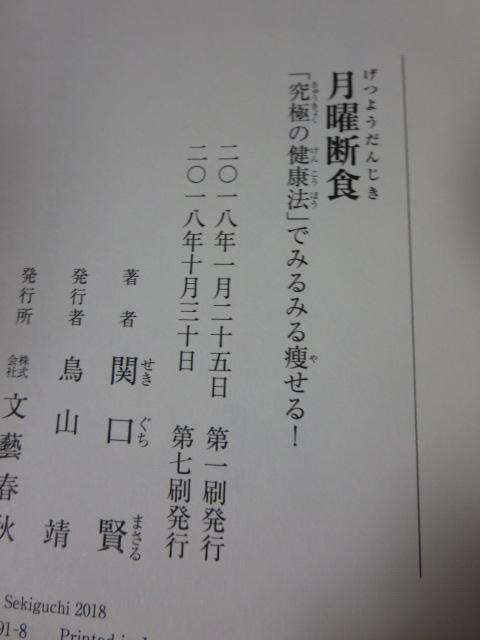 月曜断食
げつようだんじき
「究極の健康法」でみるみる痩せる!
きゅうきょく けんこうほう や
二〇一八年一月二十五日 第一刷発行
二〇一八年十月三十日 第七刷発行
著者 関口 賢
せき ぐち まさる
発行者 鳥山 靖
発行所 株式会社 文藝春秋
Sekiguchi 2018
91-8 Printed in